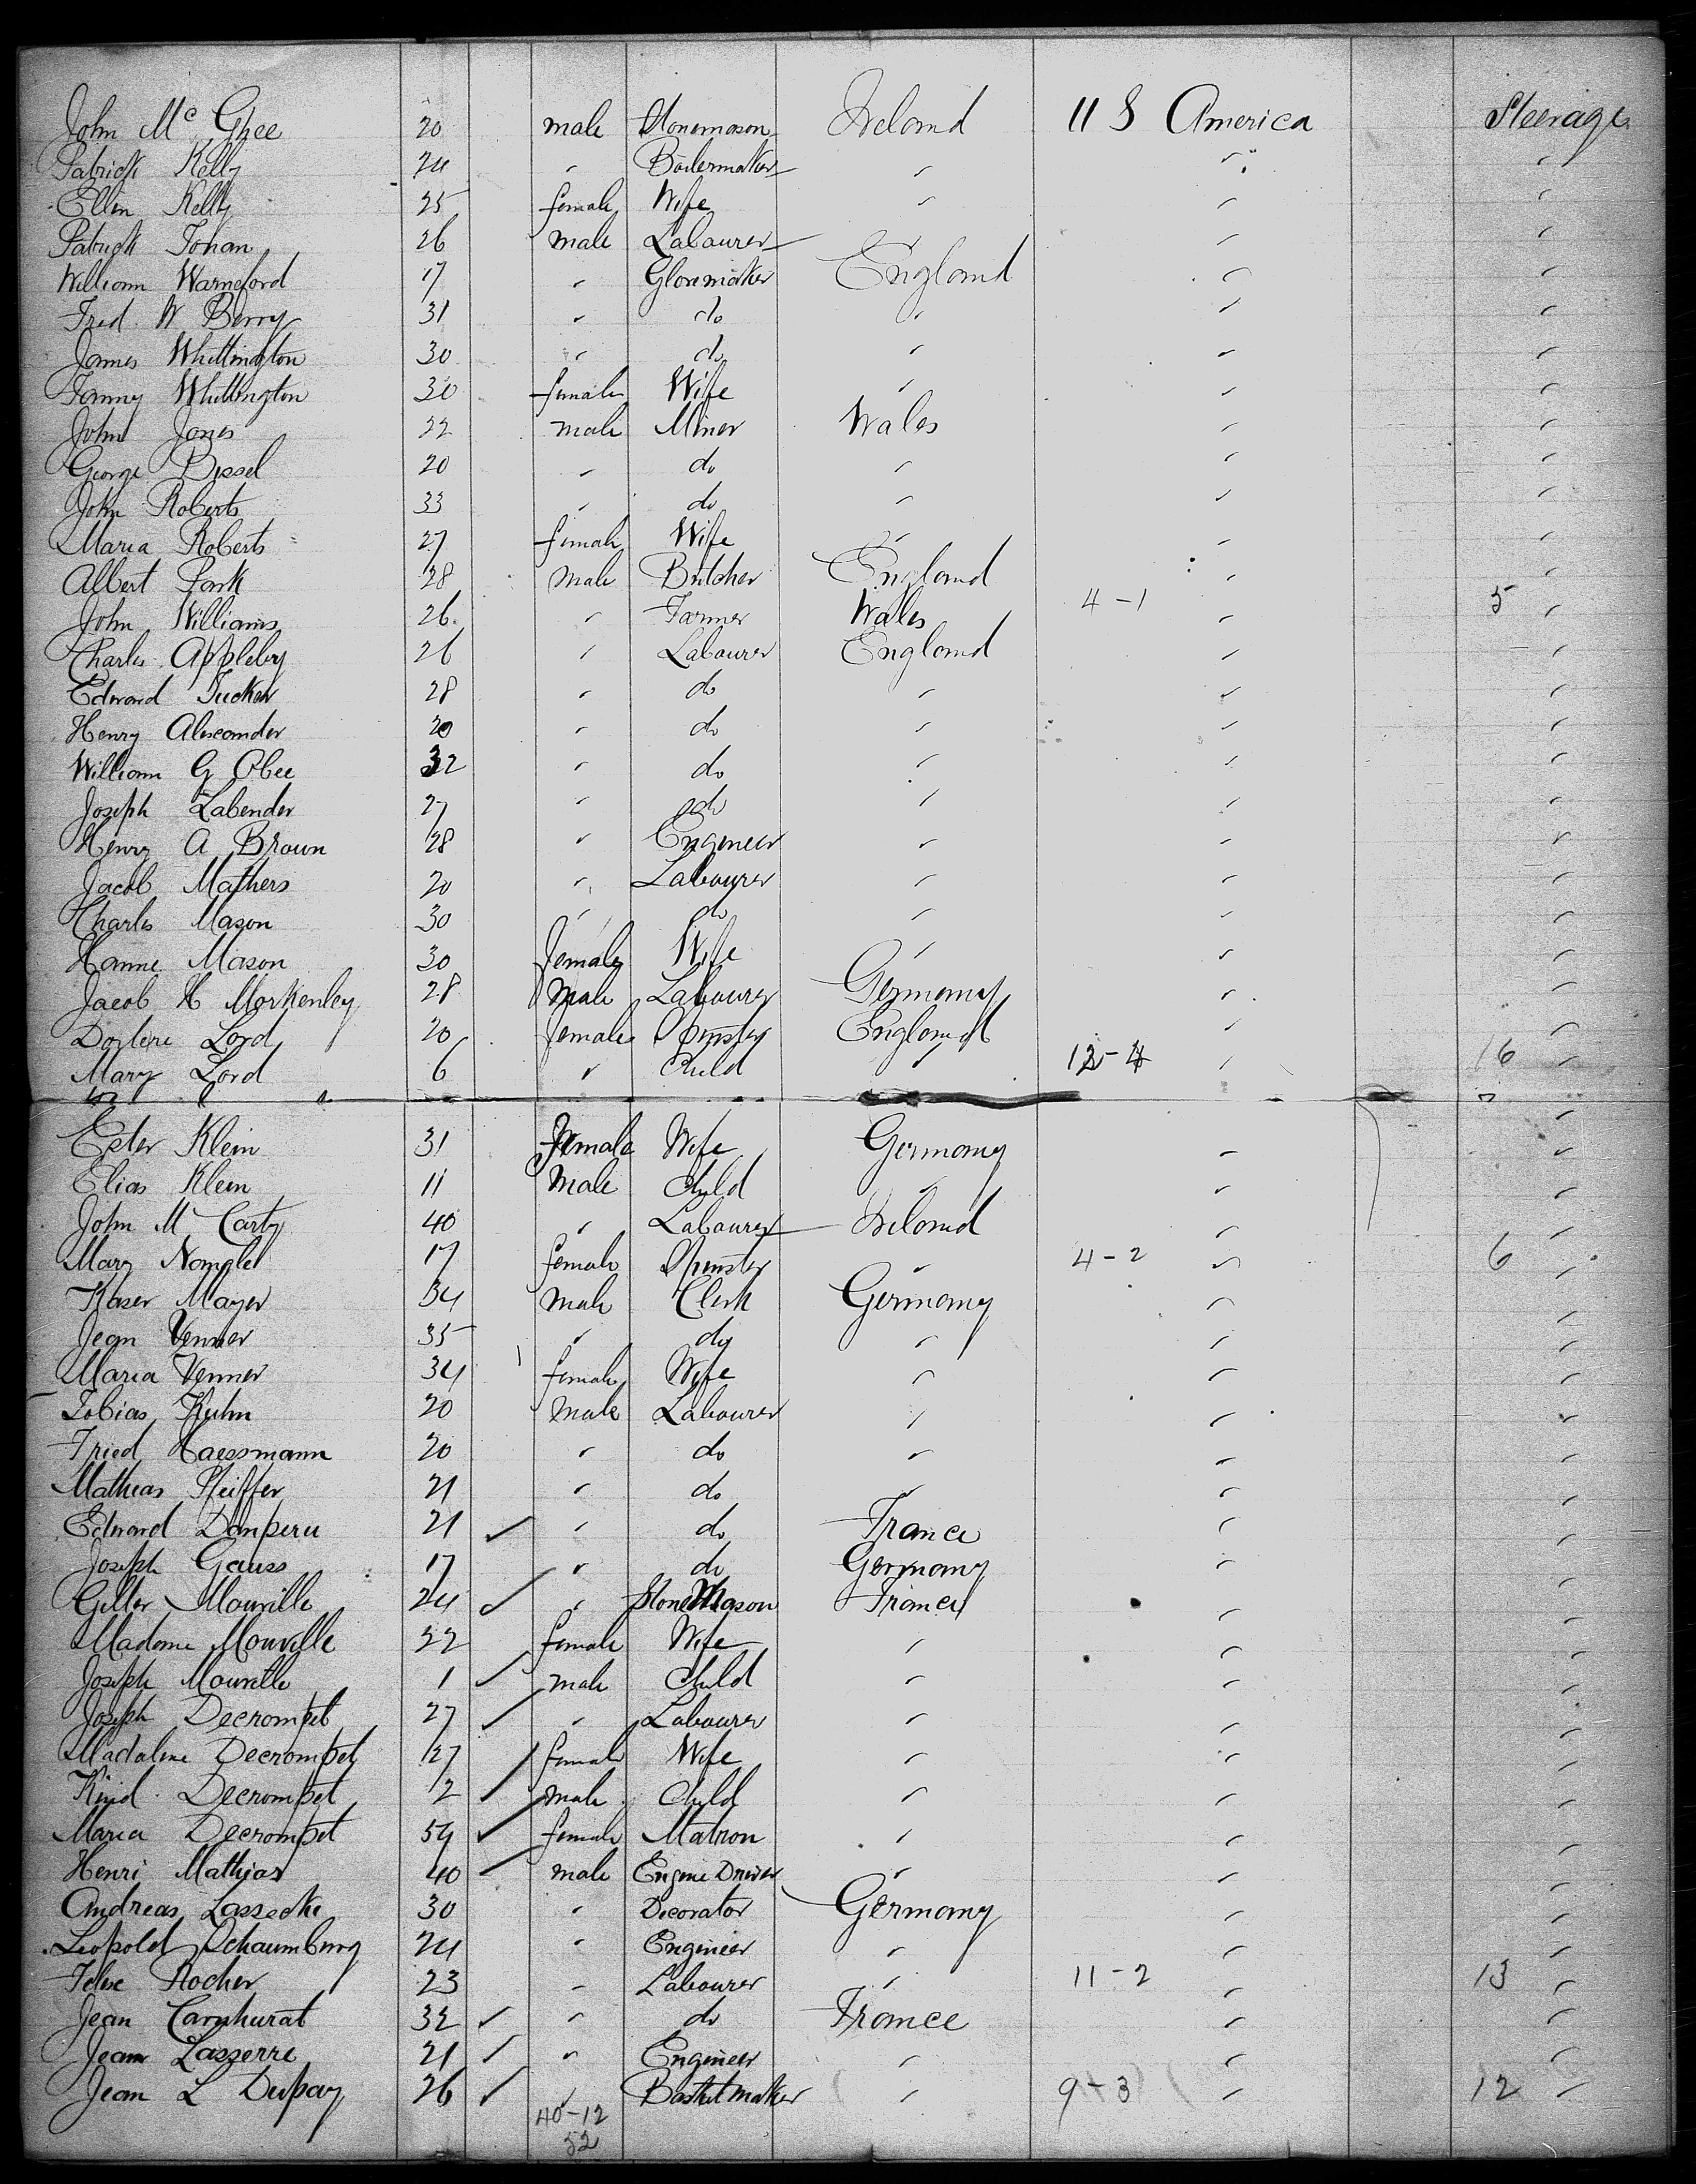 John Mc Ghee 20 male Stonemason Ireland U S America Steerage
Patrick Kelly 24 " Boilermaker " " "
Ellen Kelly 25 female Wife " " "
Patrick Tohan 26 male Labourer " " "
William Warneford 17 " Glovemaker England " "
Fred. W Berry 31 " do " " "
James Whittington 30 " do " " "
Fanny Whittington 30 female Wife " " "
John Jones 22 male Miner Wales " "
George Bissel 20 " do " " "
John Roberts 33 " do " " "
Maria Roberts 27 female Wife " " "
Albert Park 28 male Butcher England " "
John Williams 26 " Farmer Wales 4-1 " 5 "
Charles Appleby 26 " Labourer England " "
Edward Tucker 28 " do " " "
Henry Alexander 20 " do " " "
William G Obee 32 " do " " "
Joseph Labender 27 " do " " "
Henry A Brown 28 " Engineer " " "
Jacob Mathers 20 " Labourer " " "
Charles Mason 30 " do " " "
Hanne Mason 30 female Wife " " "
Jacob H Morkenley 28 male Labourer Germany " "
Lord 20 female Spinster England " "
Mary Lord 6 " Child " 12-4 " 16 "
Ester Klein 31 Female Wife Germany " "
Elias Klein 11 Male Child " " "
John Mc Carty 40 " Labourer Ireland " "
Mary 17 female Spinster " 4-2 " 6 "
Kaser Mayer 34 male Clerk Germany " "
Jean Venner 35 " do " " "
Maria Venner 34 female Wife " " "
Tobias Kuhn 20 male Labourer " " "
Fried Haessmann 20 " do " " "
Mathias Pfeiffer 21 " do " " "
Edward Domperu 21 ✓ " do France " "
Joseph Gauss 17 " do Germany " "
Geller Mourille 24 ✓ " Stone Mason France " "
Madame Mourille 22 female Wife " " "
Joseph Mourille 1 ✓ male Child " " "
Joseph Decrompet 27 ✓ " Labourer " " "
Madaline Decrompet 27 ✓ female Wife " " "
Kind Decrompet 2 ✓ male Child " " "
Maria Decrompet 54 ✓ female Matron " " "
Henri Mathias 40 ✓ male Engine Driver " " "
Andreas Lassecke 30 " Decorator Germany " "
Leopold Schaumburg 24 " Engineer " " "
Felix Rocher 23 " Labourer " 11-2 " 13 "
Jean Carnhurat 32 ✓ " do France " "
Jean Lasserre 21 ✓ " Engineer " " "
Jean L Dupoy 26 ✓ " Basketmaker " 9-3 " 12 "
40-12
52